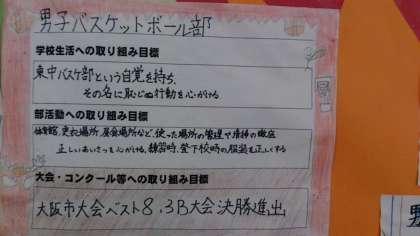 男子バスケットボール部
学校生活への取り組み目標
東中バスケ部という自覚を持ち、
その名に恥じぬ行動を心がける
部活動への取り組み目標
体育館、更衣場所、昼食場所など、使った場所の管理や清掃の徹底
正しいあいさつを心がける、練習時、登下校時の服装を正しくする
大会・コンクール等への取り組み目標
大阪市大会ベスト8、3B大会決勝進出
男